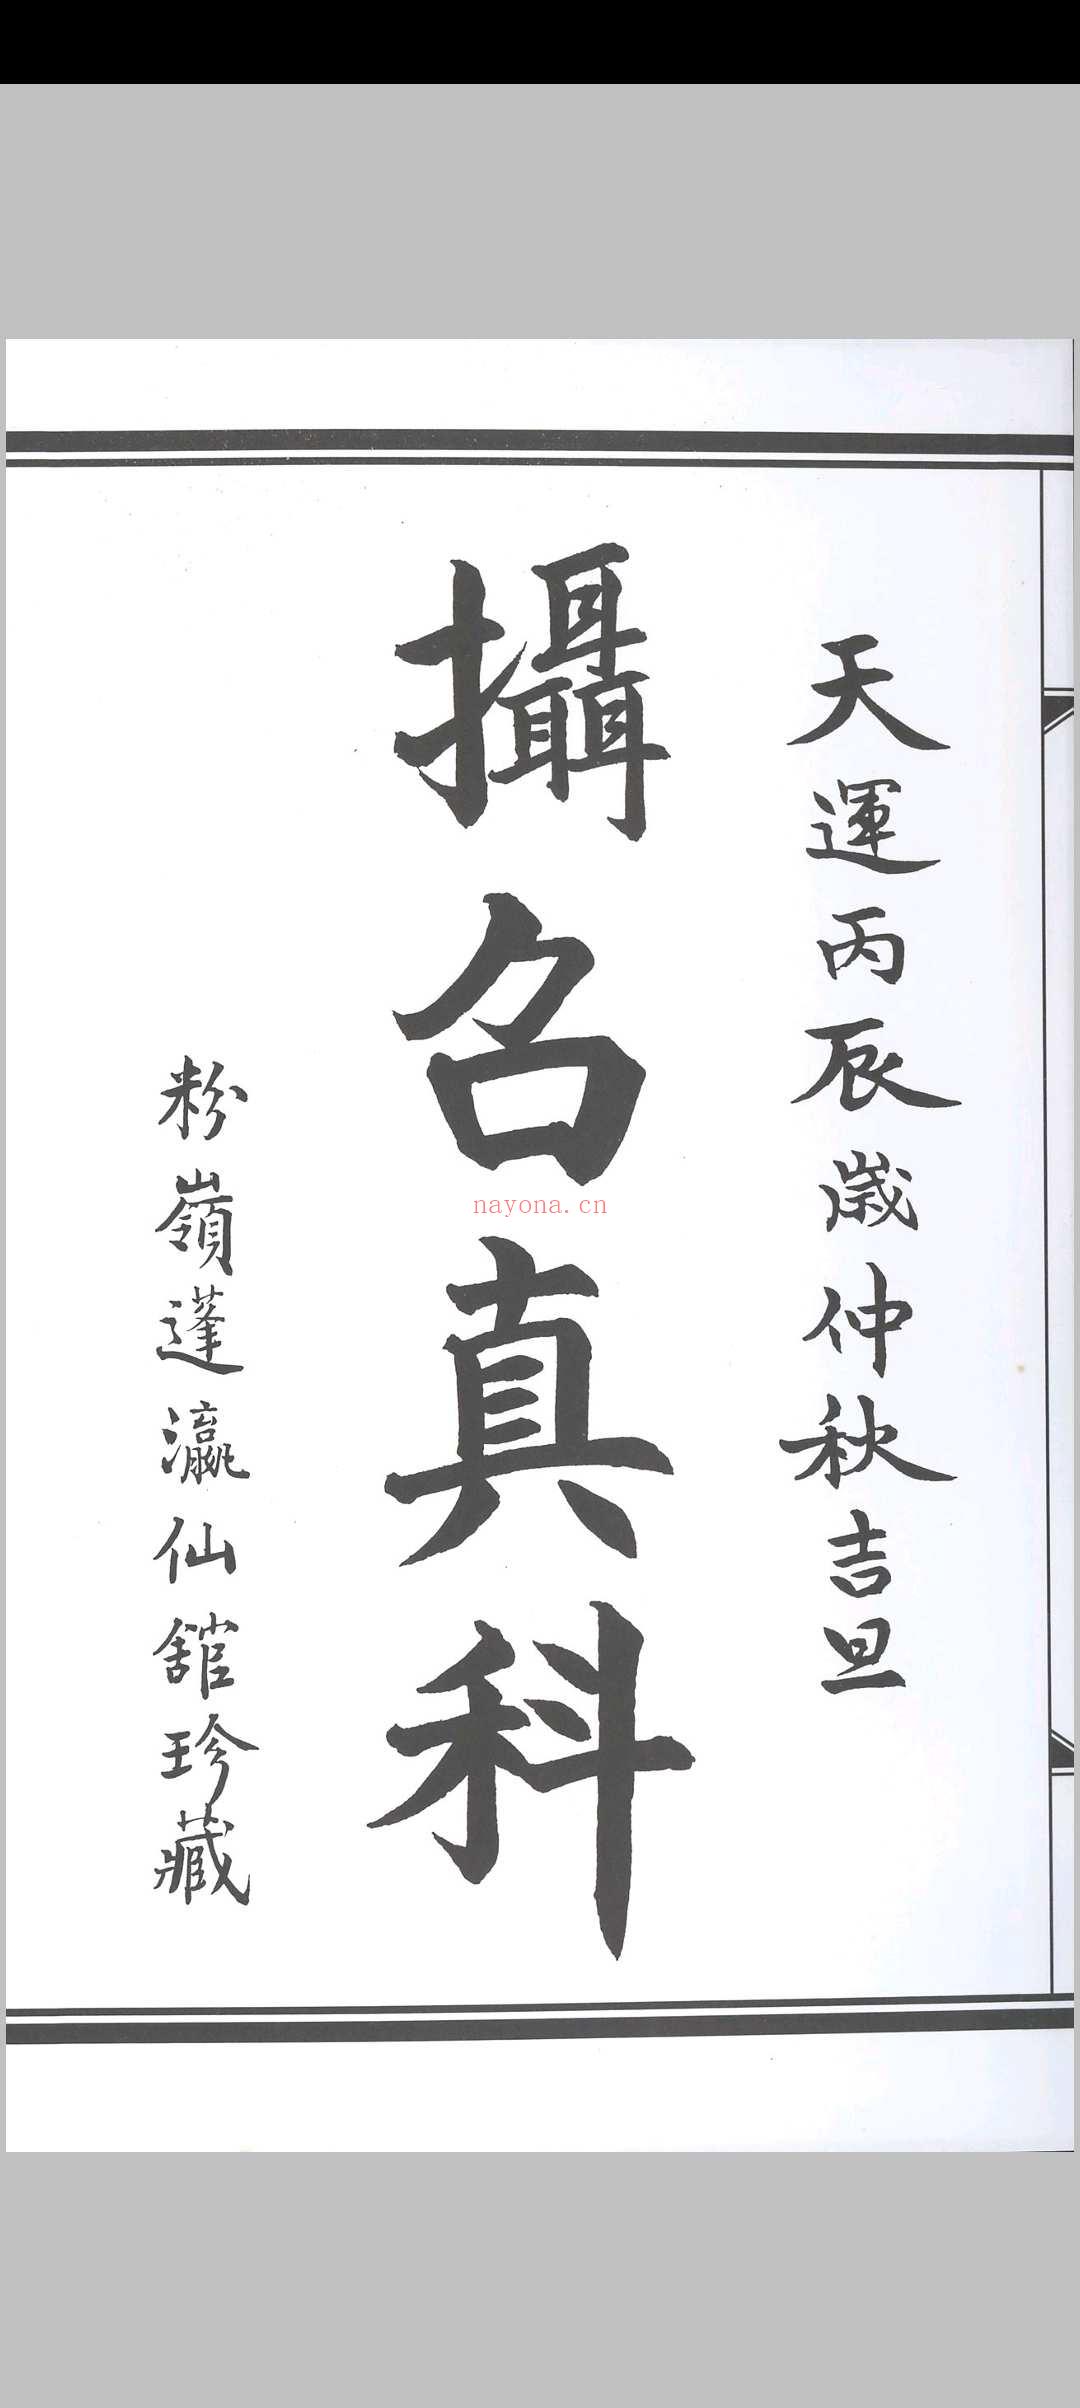 天運丙辰歲仲秋吉旦
攝召真科
粉嶺蓬瀛仙館珍藏
nayona.cn